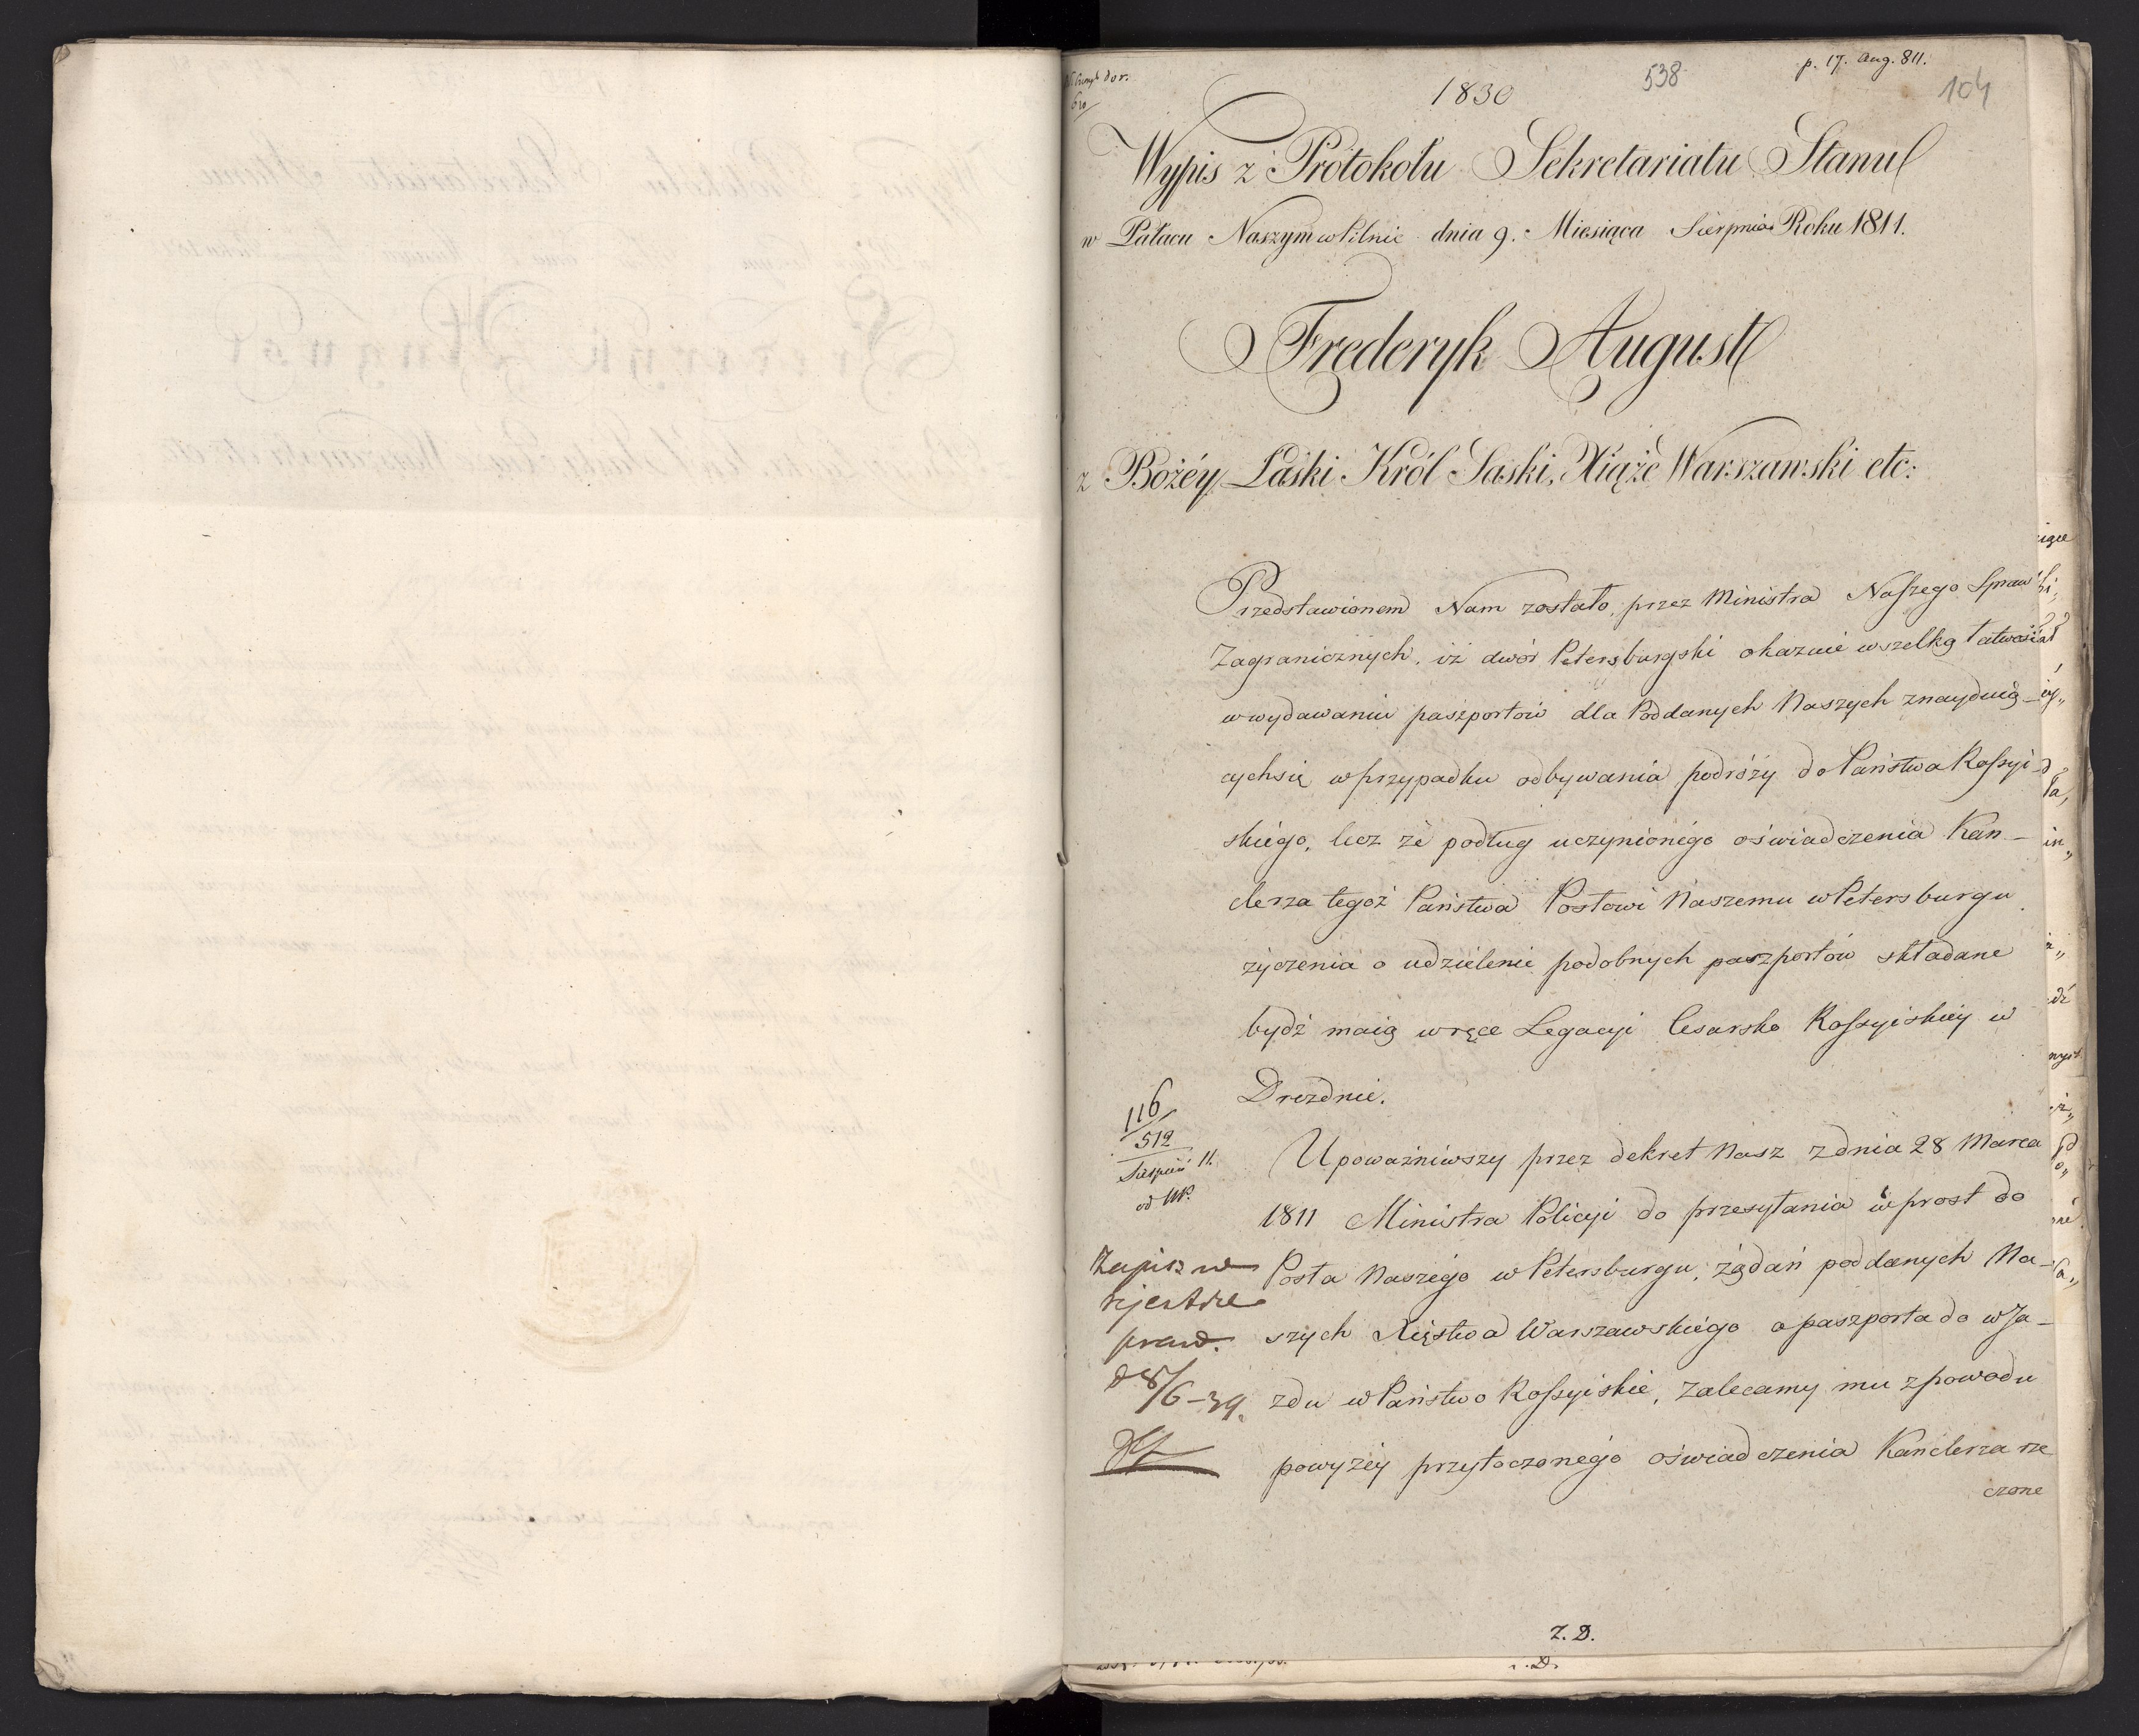 1830
538
p. 17. Aug. 811.
104
Wypis z Protokołu Sekretariatu Stanu
w Pałacu Naszym w Pilnie dnia 9. Miesiąca Sierpnia Roku 1811.
Frederyk August
z Bożéy Łaski Król Saski, Xiążę Warszawski etc:
Przedstawionem Nam zostało, przez Ministra Naszego Spraw
Zagranicznych, iż dwór Petersburgski okazuie wszelką łatwość
w wydawaniu paszportów dla Poddanych Naszych znayduią-
cychsię w przypadku odbywania podróży do Państwa Rossyi-
skiego, lecz że podług uczynionego oświadczenia Kan-
clerza tegoż Państwa Posłowi Naszemu w Petersburgu
życzenia o udzielenie podobnych paszportów składane
bydź maią w ręce Legacyi Cesarsko Rossyiskiéy w
Dreznie.
116
512
Sierpień 11.
od MP.
Upoważniwszy przez dekret Nasz z dnia 28 Marca
1811 Ministra Policyi do przesyłania wprost do
Posła Naszego w Petersburgu, żądań poddanych Na-
szych Xięstwa Warszawskiego o paszporta do wja-
zdu w Państwo Rossyiskie, zalecamy mu z powodu
powyżéy przytoczonego oświadczenia Kanclerza rze
czone
Zapis w
rejestrze
prawd.
d 8/6-39.
Z. D.